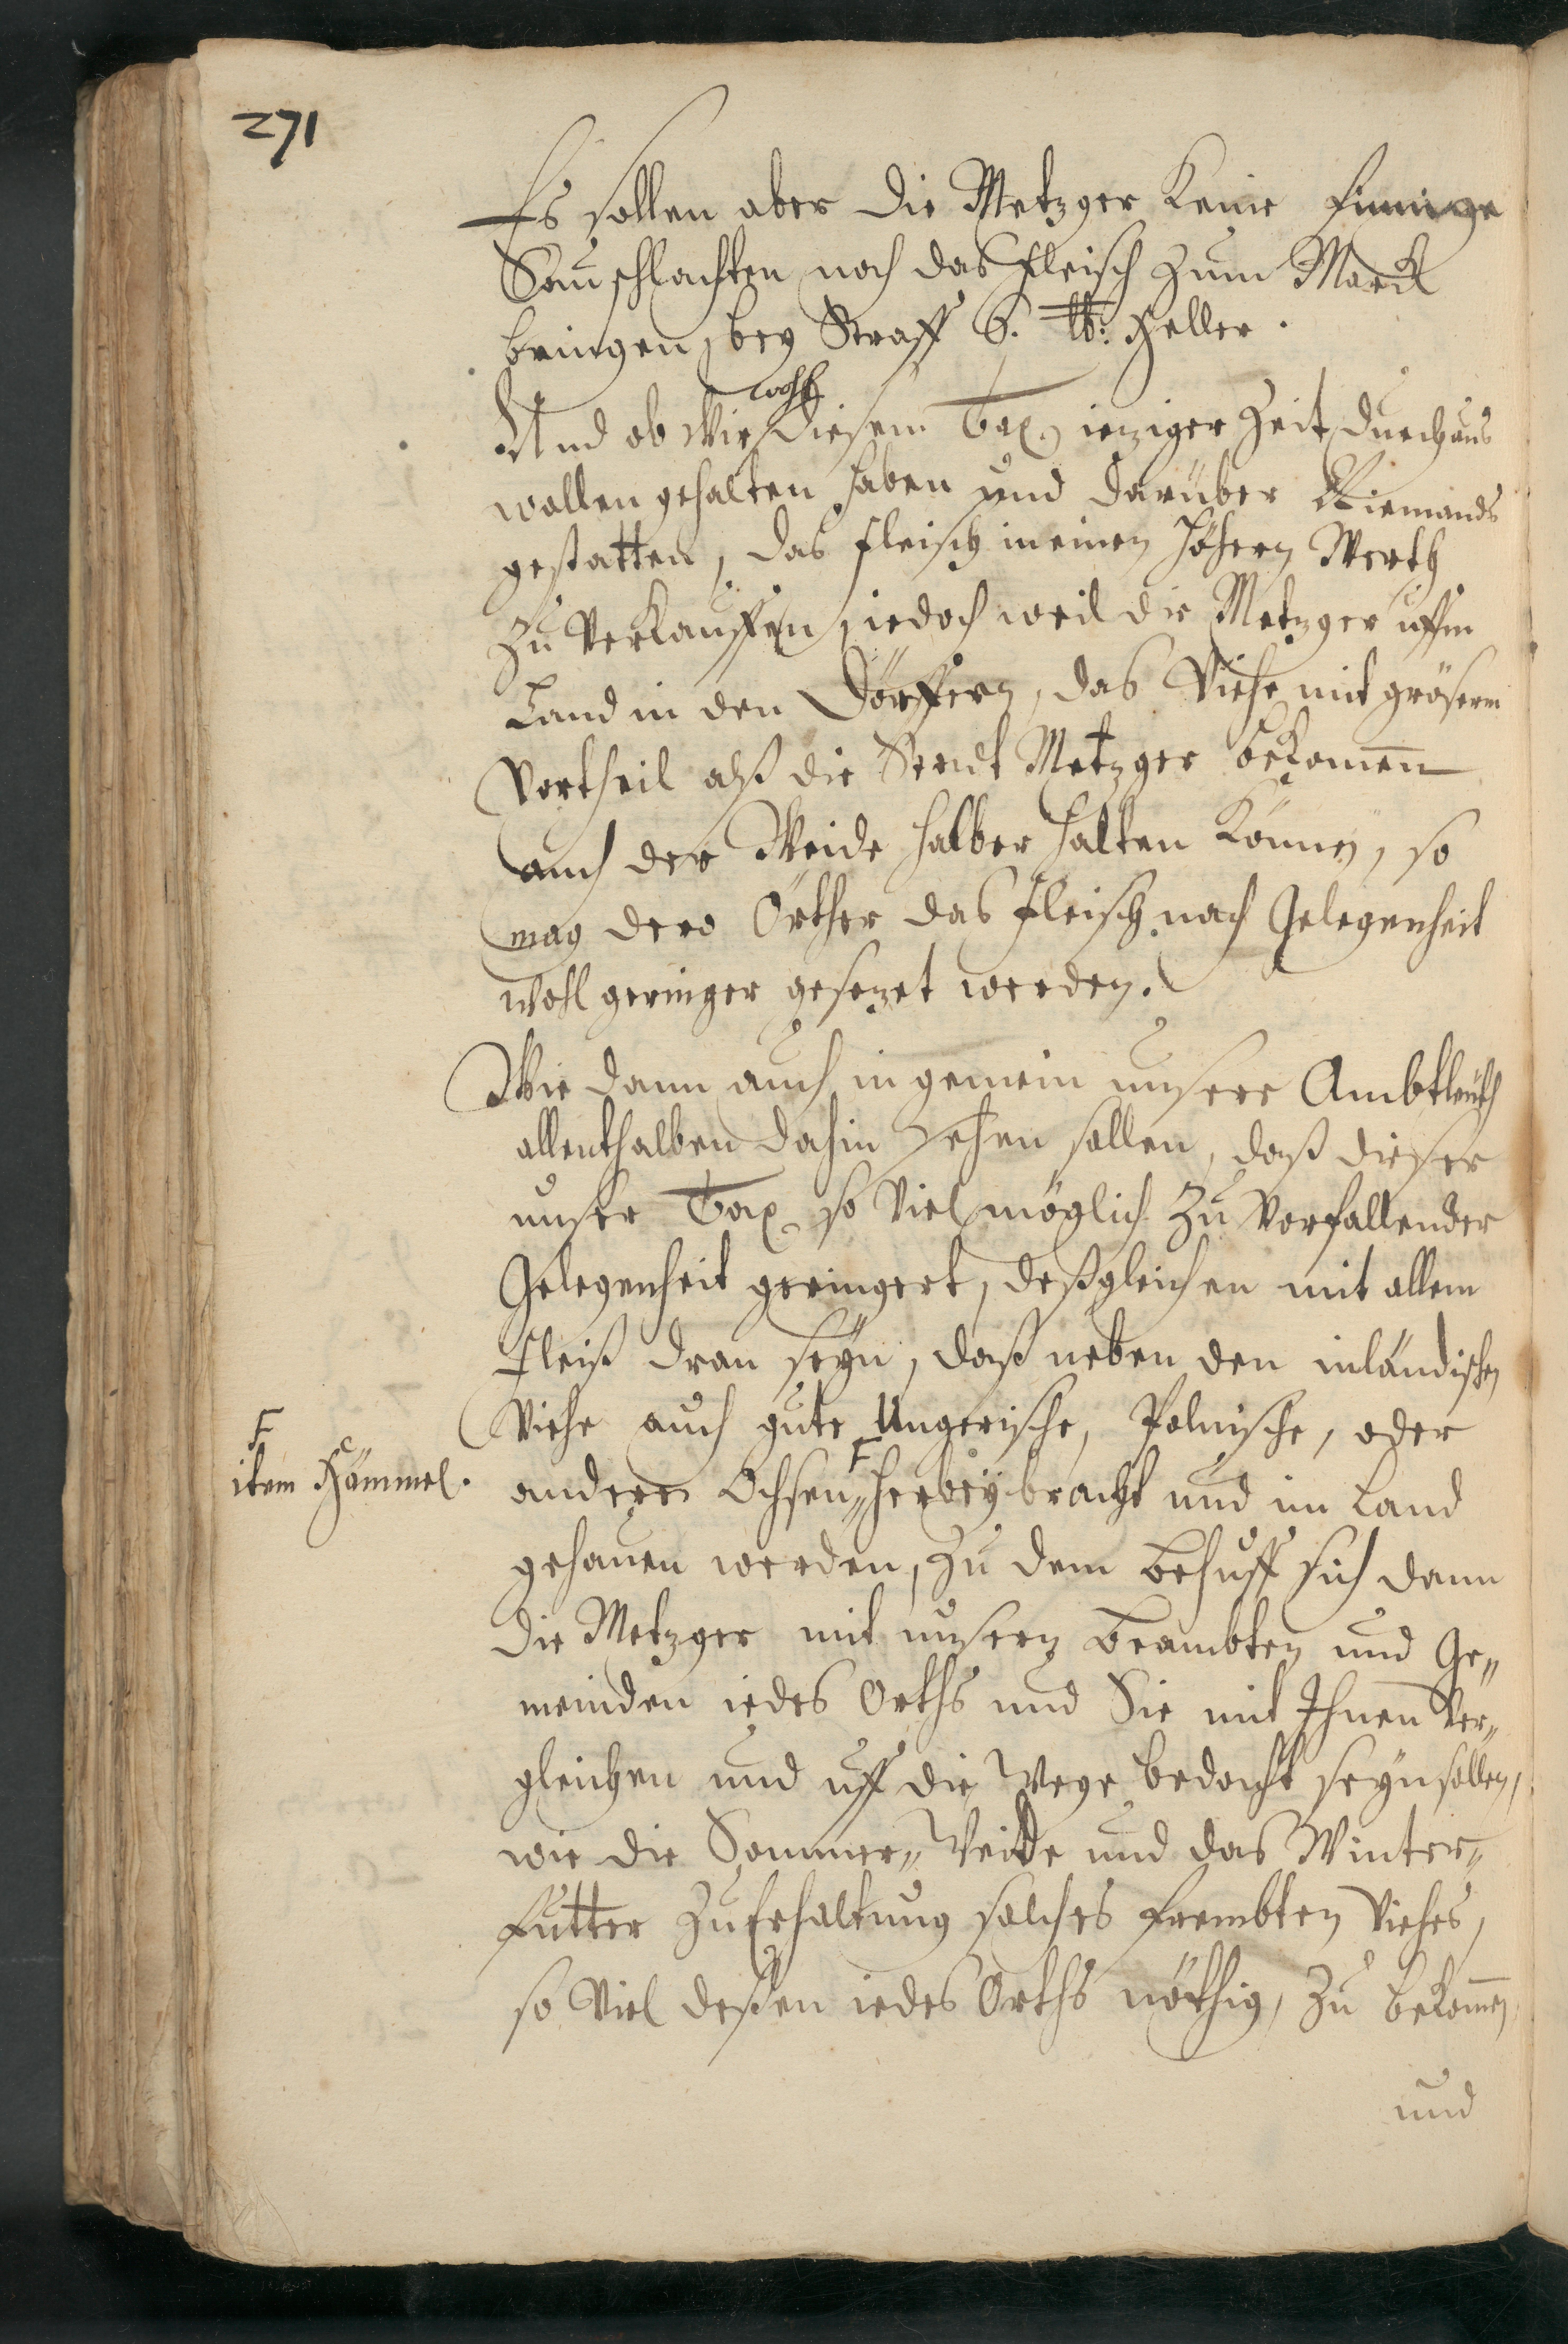 271
Es sollen aber die Metzger Keine finnige
Sau schlachten noch das fleisch zum Marck
bringen, bey Straff 6. lb: Heller.
wohl
Und ob Wir diesem Tax, ieziger Zeit durchaus
wollen gehalten haben und darüber Niemands
gestatten, das fleisch in einen höhern Werth
zu Verkauffen, iedoch weil die Metzger uffm
Land in den Dörffern, das Viehe mit grösserm
Vortheil alß die Stadt Metzger bekomen
auch der Weide halber halten Können, so
mag dero Örther das fleisch nach Gelegenheit
wohl geringer gesezet werden.
Wie dann auch in gemein unsere Ambtleuth
allenthalben dahin sehen sollen, daß dieser
unser Tax so Viel möglich zu Vorfallender
Gelegenheit geringert, deßgleichen mit allem
fleiß dran seyn, daß neben den inländischen
Viehe auch gute Ungerische, Polnische, oder
F
item Hämmel.
andere Ochsen F herbey bracht und im Land
gehauen werden, zu dem behuff sich dann
die Metzger mit unsern beambten und Ge„
meinden iedes Orths und Sie mit Ihnen Ver„
gleichen und uff die Wege bedacht seyn sollen,
wie die Sommer„ Weide und das Winter„
futter zu Erhaltung solches frembten Viehes,
so Viel deßen iedes Orths nöthig, zu bekomen
und